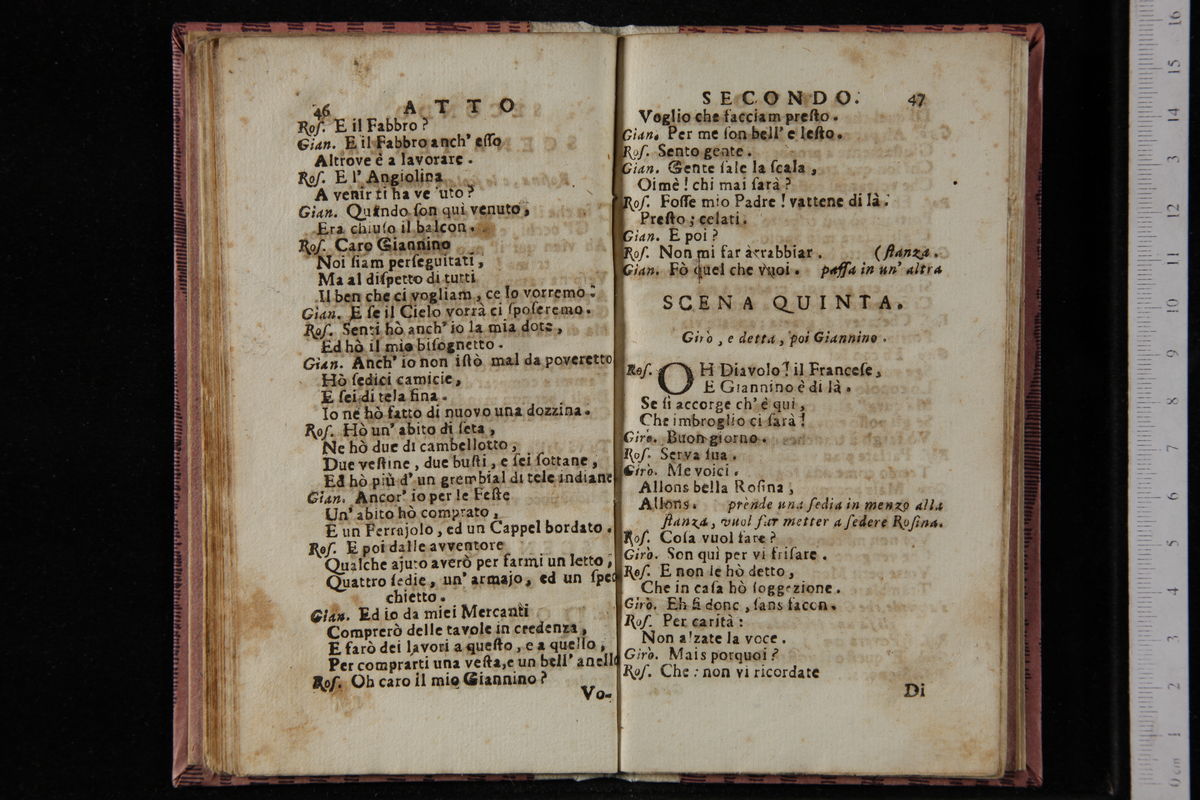 46 ATTO
Roſ. E il Fabbro ?
Gian. E il Fabbro anch' eſſo
Altrove è a lavorare .
Roſ. E l' Angiolina
A venir ti ha ve uto ?
Gian. Quando ſon qui venuto ,
Era chiuſo il balcon .
Roſ. Caro Giannino
Noi ſiam perſeguitati ,
Ma al diſpetto di tutti
Il ben che ci vogliam , ce lo vorremo .
Gian. E ſe il Cielo vorrà ci ſpoſeremo .
Roſ. Senti hò anch' io la mia dote ,
Ed hò il mio biſognetto .
Gian. Anch' io non iſtò mal da poveretto
Hò ſedici camicie ,
E ſei di tela fina .
Io ne hò fatto di nuovo una dozzina .
Roſ. Hò un' abito di ſeta ,
Ne hò due di cambellotto ,
Due veſtine , due buſti , e ſei ſottane ,
Ed hò più d' un grembial di tele indiane
Gian. Ancor' io per le Feſte
Un' abito hò comprato ,
E un Ferrajolo , ed un Cappel bordato .
Roſ. E poi dalle avventore
Qualche ajuto averò per farmi un letto ,
Quattro ſedie , un' armajo , ed un ſpec
chietto .
Gian. Ed io da miei Mercanti
Comprerò delle tavole in credenza ,
E farò dei lavori a queſto , e a quello ,
Per comprarti una veſta,e un bell' anello
Roſ. Oh caro il mio Giannino ?
Vo-
SECONDO. 47
Voglio che facciam preſto .
Gian. Per me ſon bell' e leſto .
Roſ. Sento gente .
Gian. Gente ſale la ſcala ,
Oimè ! chi mai ſarà ?
Roſ. Foſſe mio Padre ! vattene di là .
Preſto ; celati .
Gian. E poi ?
Roſ. Non mi far arrabbiar . (ſtanza .
Gian. Fò quel che vuoi . paſſa in un' altra
SCENA QUINTA.
Girò , e detta , poi Giannino .
Roſ. OH Diavolo ! il Franceſe ,
E Giannino è di là .
Se ſi accorge ch' è qui ,
Che imbroglio ci ſarà !
Girò. Buon giorno .
Roſ. Serva ſua .
Girò. Me voici .
Allons bella Roſina ,
Allons . prende una ſedia in menzo alla
ſtanza , vuol far metter a ſedere Roſina.
Roſ. Coſa vuol fare ?
Girò. Son quì per vi friſare .
Roſ. E non le hò detto ,
Che in caſa hò ſoggezione .
Girò. Eh fi donc , ſans facon .
Roſ. Per carità :
Non alzate la voce .
Girò. Mais porquoi ?
Roſ. Che : non vi ricordate
Di
0 cm 1 2 3 4 5 6 7 8 9 10 11 12 13 14 15 16